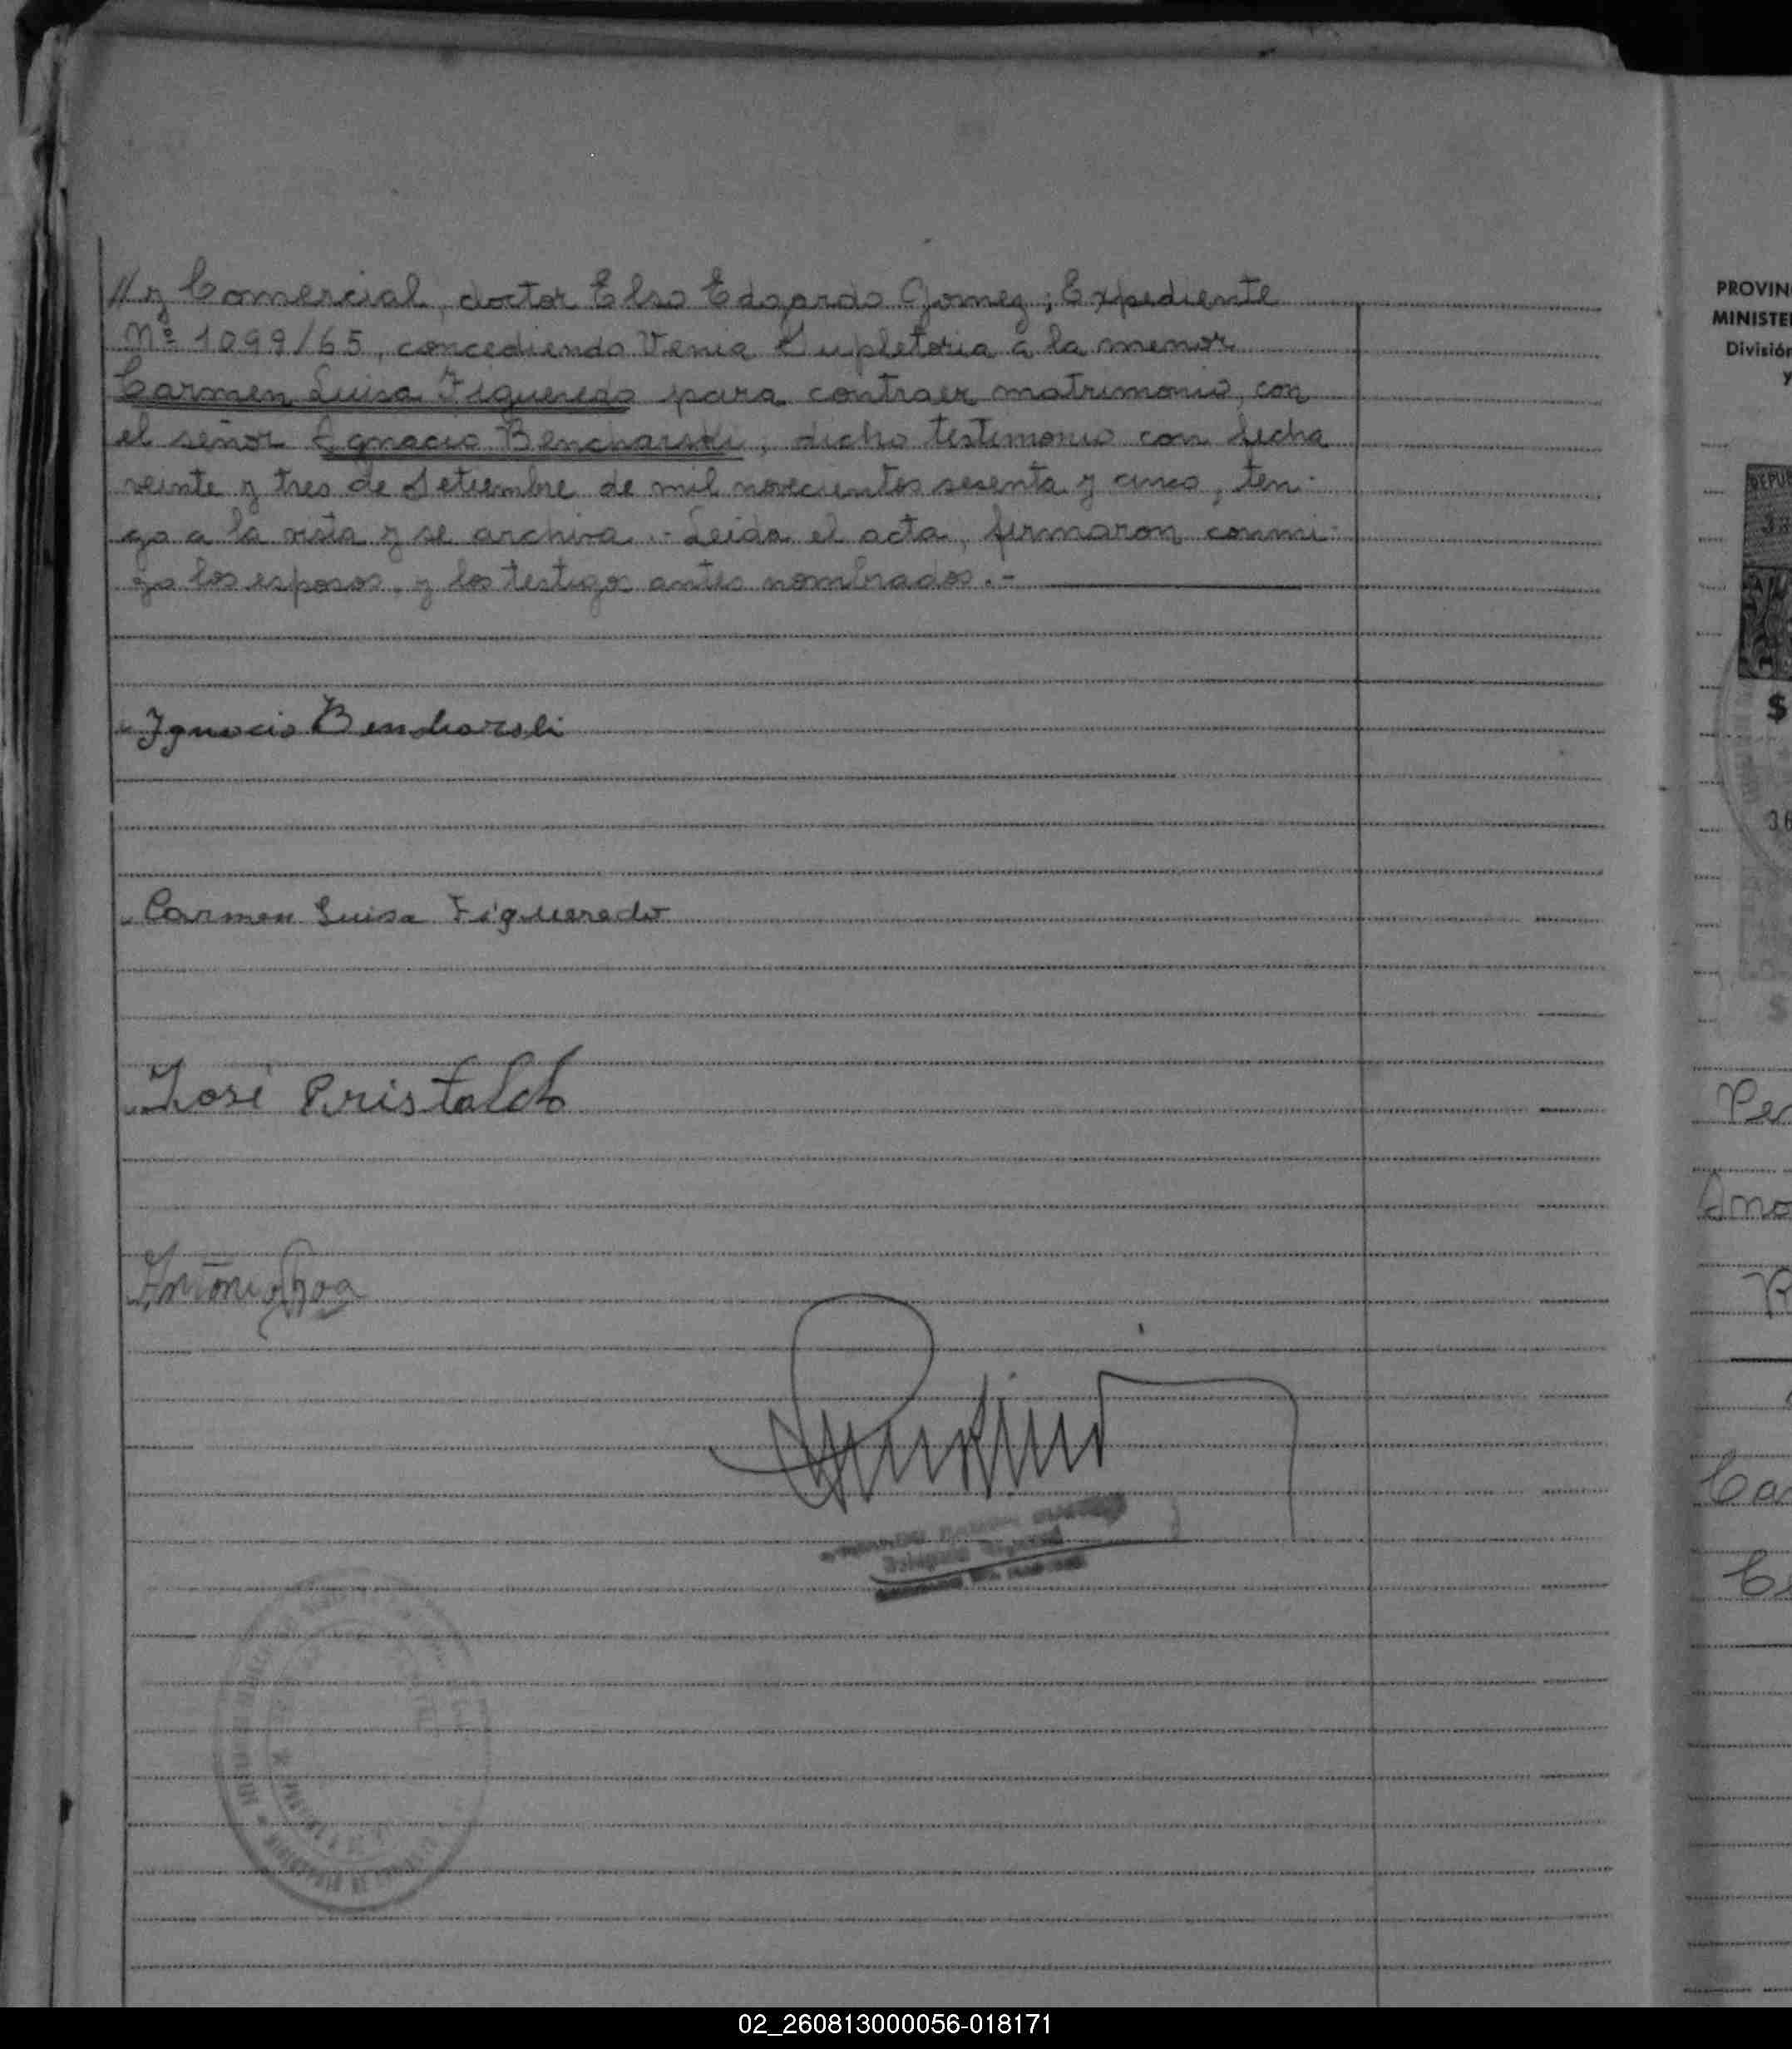 // y Comercial, doctor Elso Edgardo Gomez; Expediente
Nº 1099/65, concediendo Venia Supletoria a la menor
Carmen Luisa Figueredo para contraer matrimonio, con
el señor Ignacio Bencharski; dicho testimonio con fecha
veinte y tres de Setiembre de mil novecientos sesenta y cinco, ten-
go a la vista y se archiva.- Leida el acta, firmaron conmi-
go los esposos, y los testigos antes nombrados.-
Ignacio Bencharski
Carmen Luisa Figueredo
José Cristaldo
Antonio
PROVIN
MINISTE
División
y
$
36
Ama
Ca
02_260813000056-018171